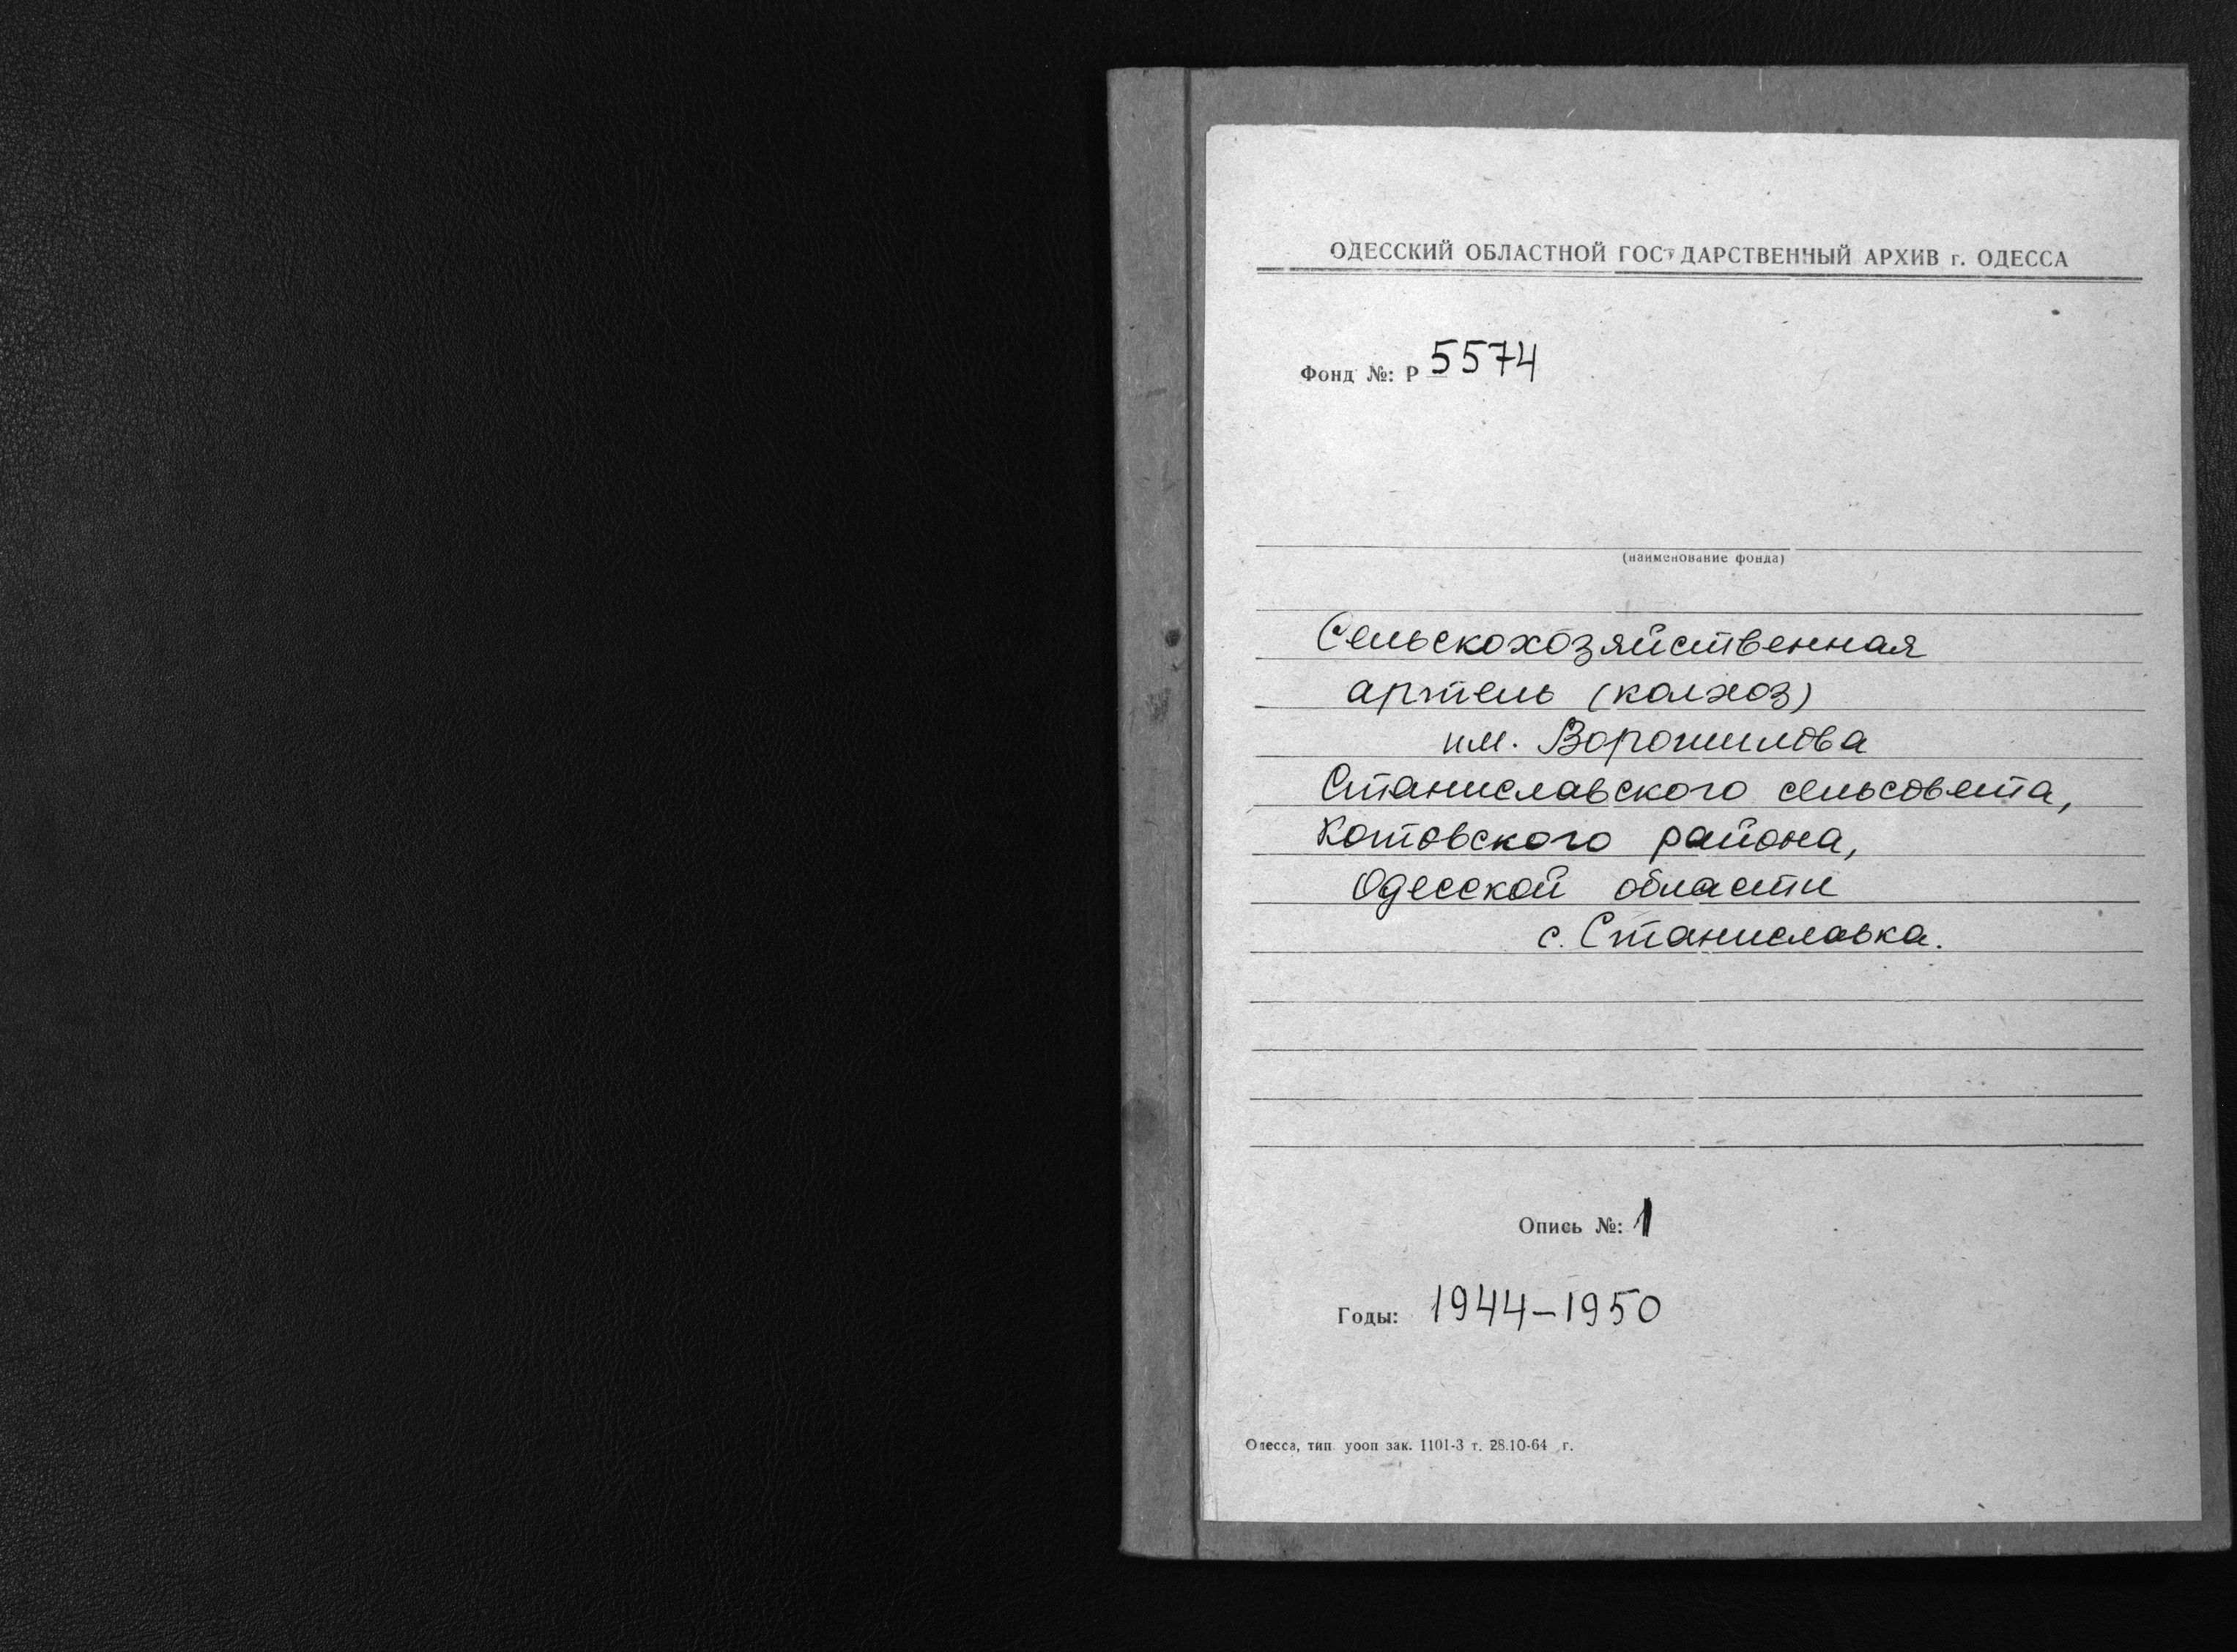 ОДЕССКИЙ ОБЛАСТНОЙ ГОСУДАРСТВЕННЫЙ АРХИВ г. ОДЕССА
Фонд №: Р 5574
(наименование фонда)
Сельскохозяйственная
артель (колхоз)
им. Ворошилова
Станиславского сельсовета,
Котовского района,
Одесской области
с. Станиславка.
Опись №: 1
Годы: 1944–1950
Одесса, тип. уооп зак. 1101-3 т. 28.10-64 г.